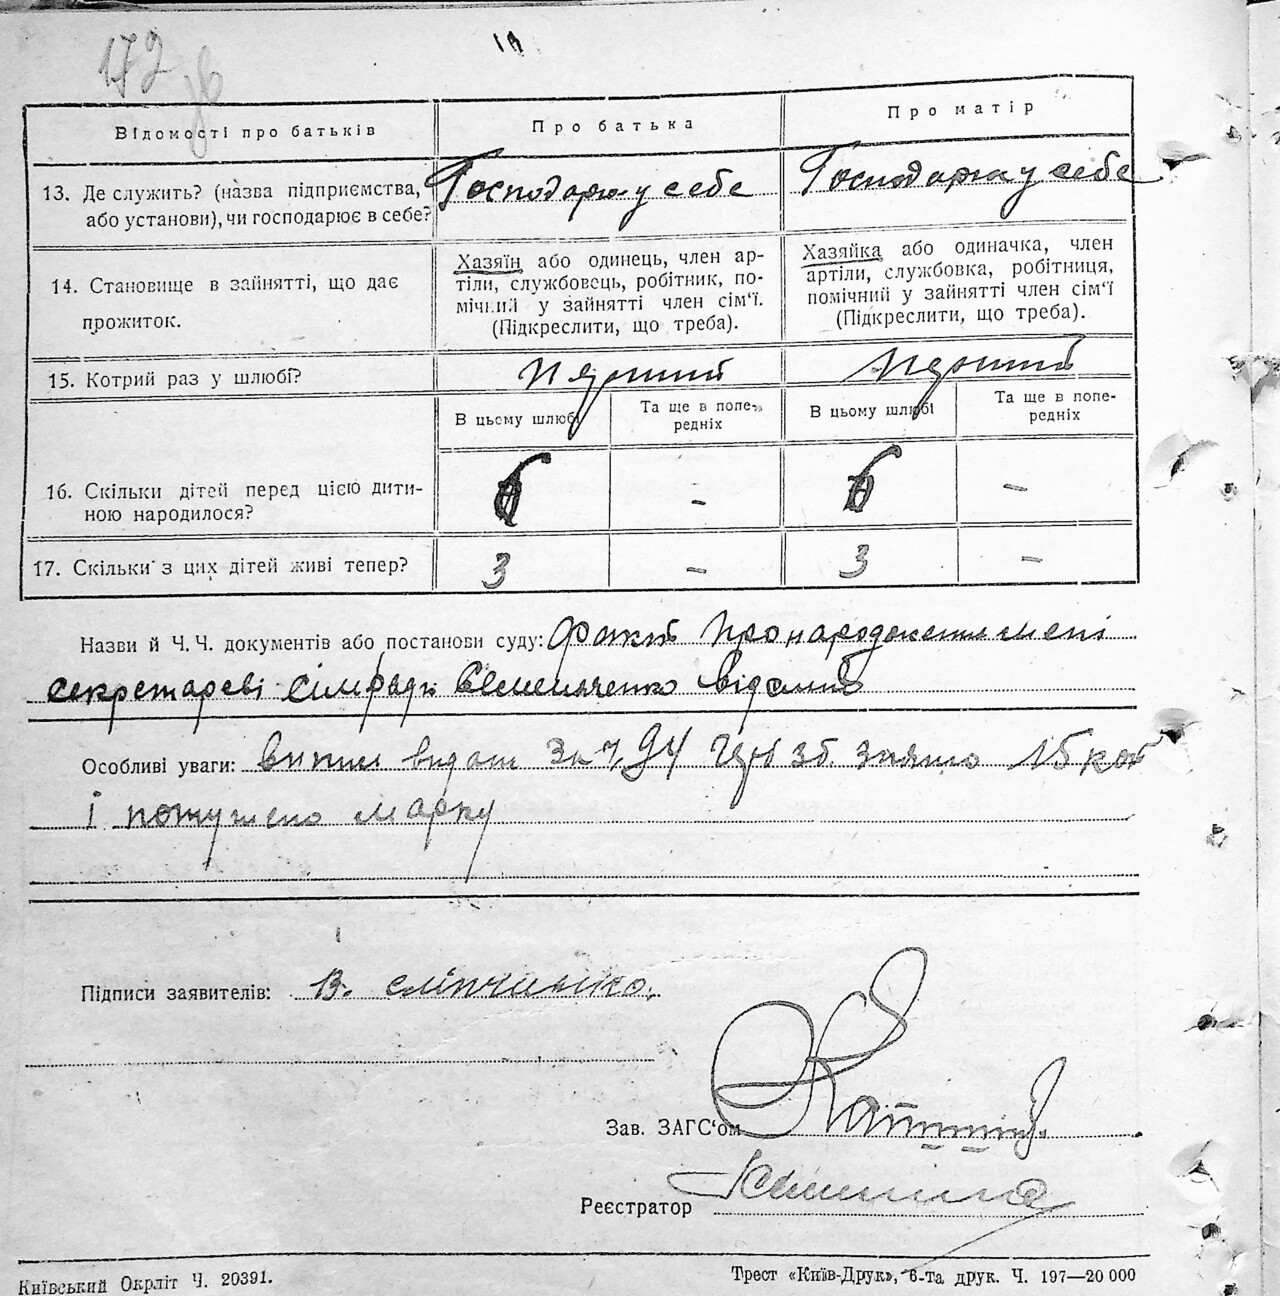 172 зв
Відомості про батьків
Про батька
Про матір
13. Де служить? (назва підприємства, або установи), чи господарює в себе?
Господарка у себе
Господарка у себе
14. Становище в зайнятті, що дає прожиток.
Хазяїн або одинець, член ар-
тіли, службовець, робітник, по-
мічний у зайнятті член сім'ї.
(Підкреслити, що треба).
Хазяйка або одиначка, член
артіли, службовка, робітниця,
помічний у зайнятті член сім'ї
(Підкреслити, що треба).
15. Котрий раз у шлюбі?
В цьому шлюбі
Та ще в попе-
редніх
В цьому шлюбі
Та ще в попе-
редніх
16. Скільки дітей перед цією дити-
ною народилося?
6 - 6 -
17. Скільки з цих дітей живі тепер?
3 - 3 -
Назви й Ч. Ч. документів або постанови суду: Факт про народження мені
секретареві сільради відомо
Особливі уваги: видан За 15 коп
і погушено марку
Підписи заявителів: В.
Зав. ЗАГС'ом
Реєстратор
Київський Окрліт Ч. 20391.
Трест «Київ-Друк», 6-та друк. Ч. 197—20 000